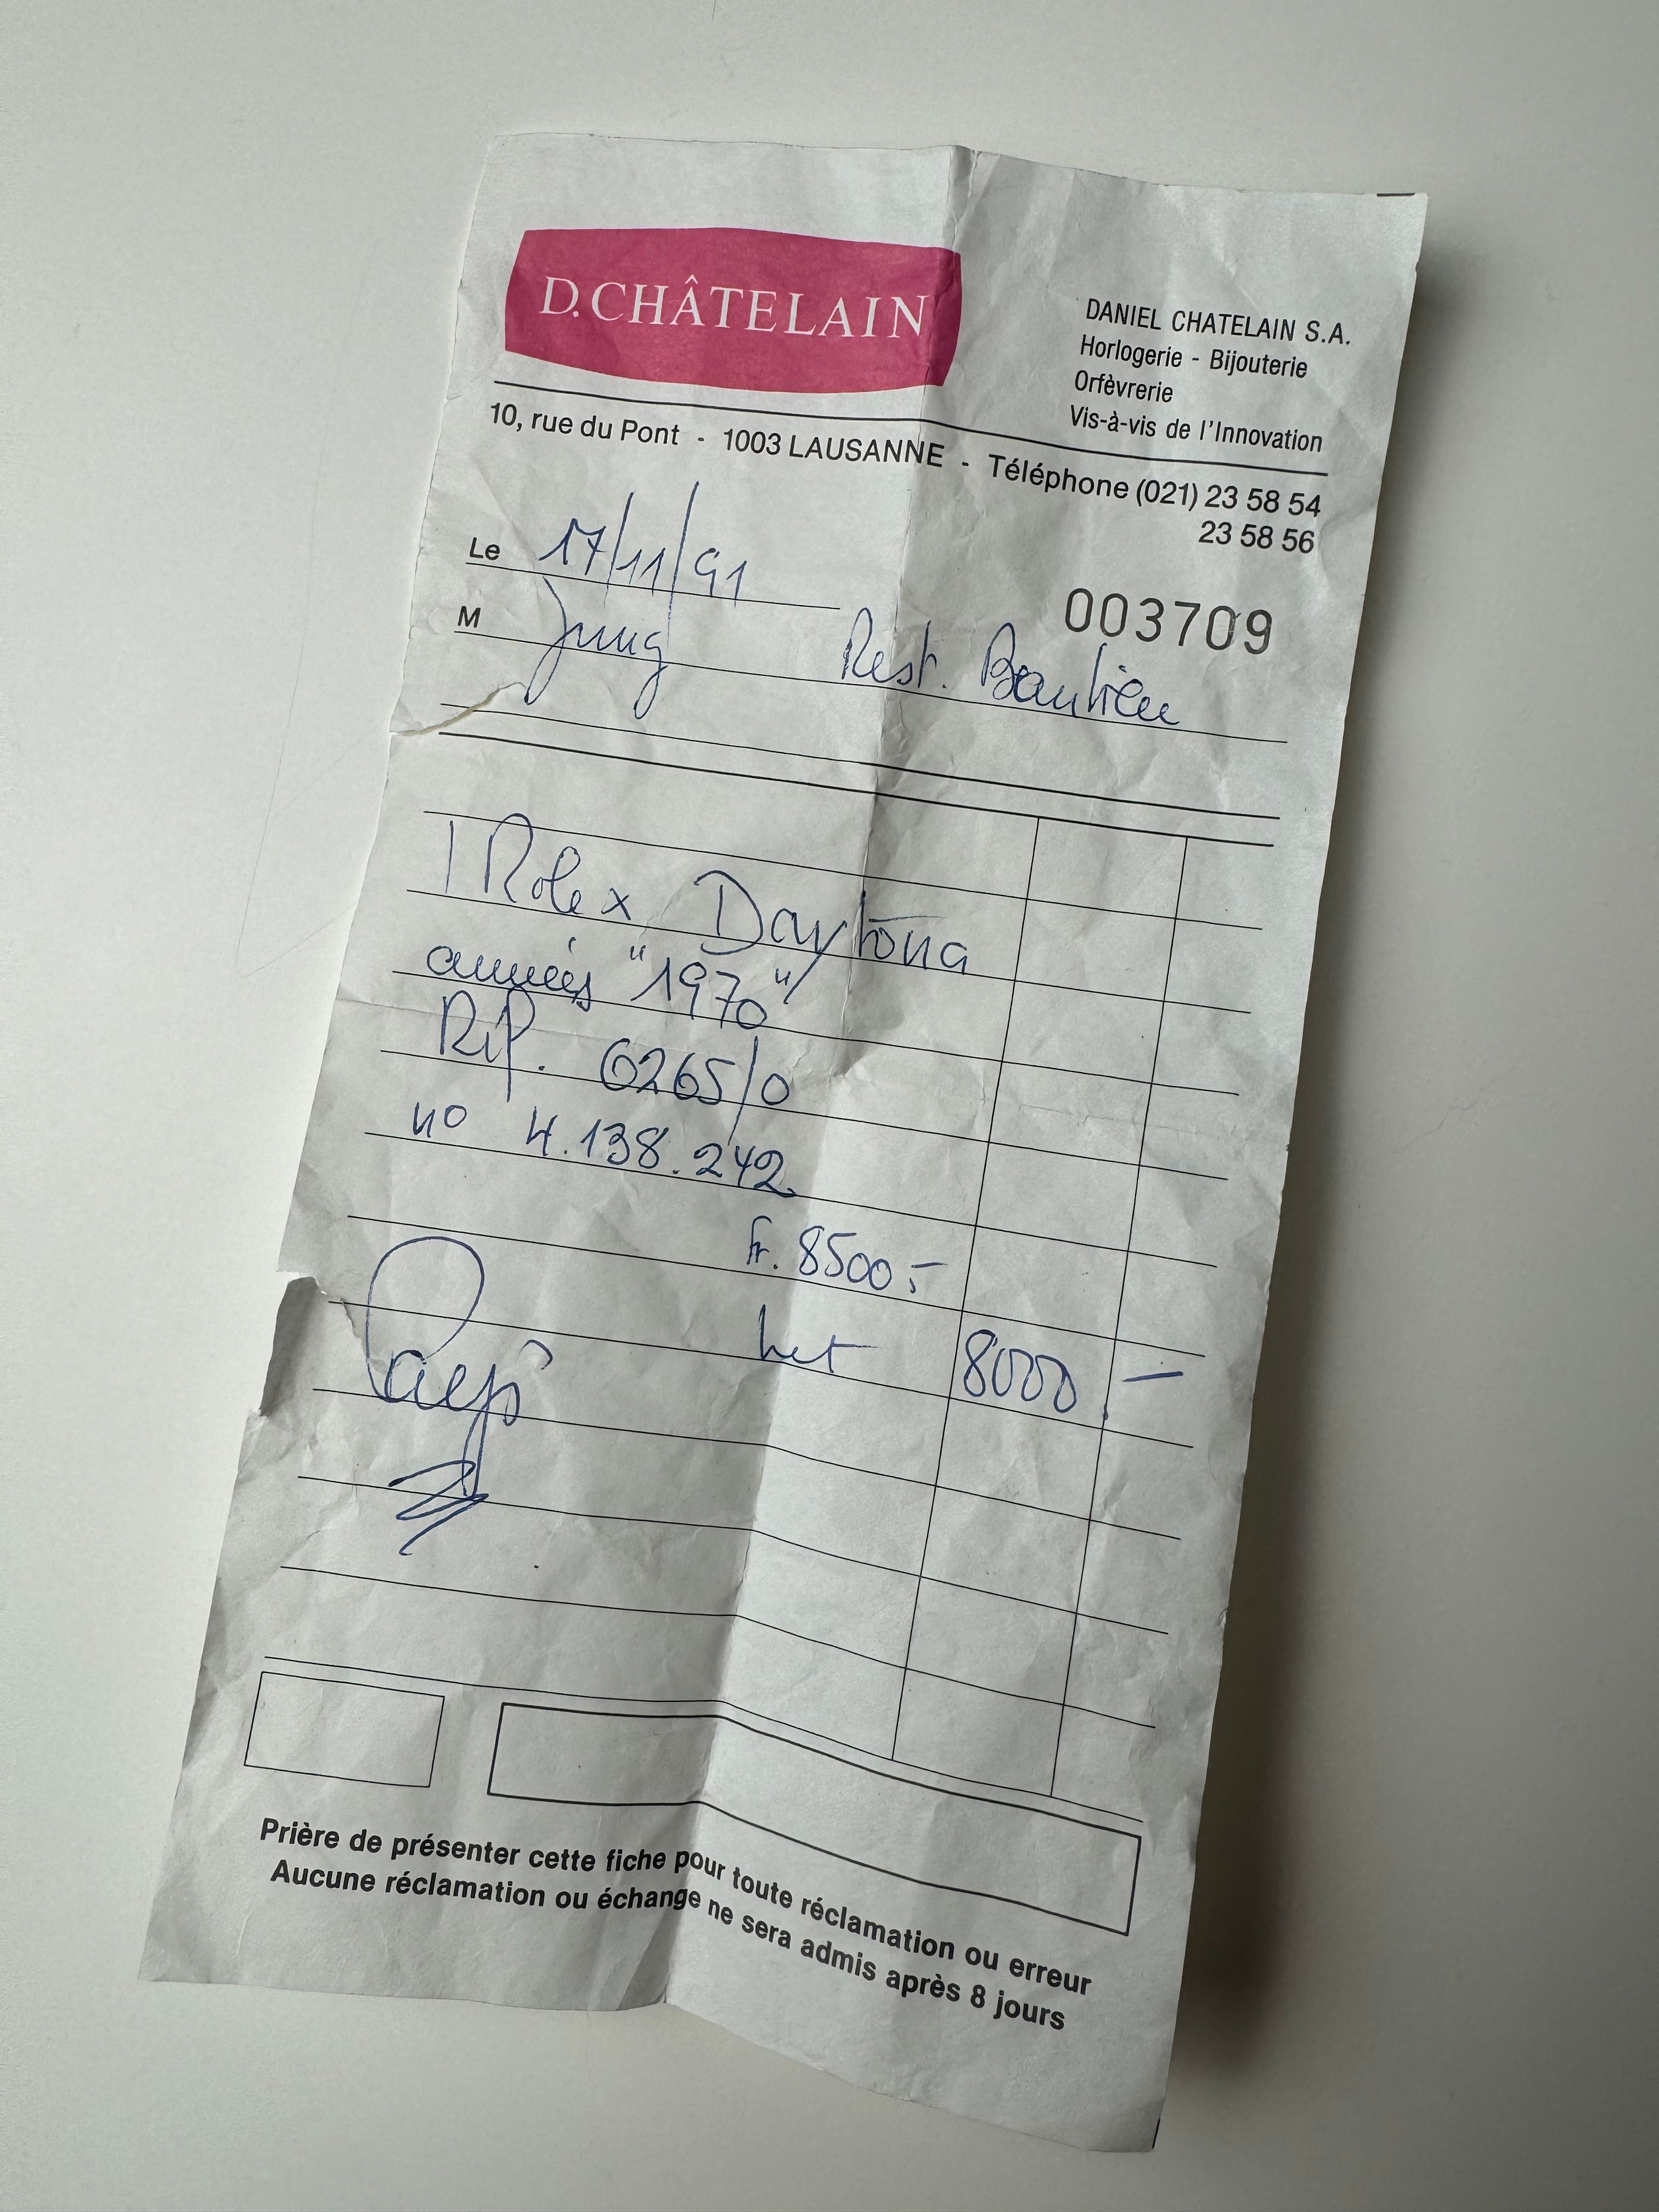 D. CHÂTELAIN
DANIEL CHATELAIN S.A.
Horlogerie - Bijouterie
Orfèvrerie
Vis-à-vis de l'Innovation
10, rue du Pont - 1003 LAUSANNE - Téléphone (021) 23 58 54
23 58 56
Le 17/11/91
003709
M Jung Rest.
1 Rolex Daytona
années "1970"
Réf. 6265/0
no 4.138.242
Fr. 8500.-
net 8000.-
Payé
Prière de présenter cette fiche pour toute réclamation ou erreur
Aucune réclamation ou échange ne sera admis après 8 jours